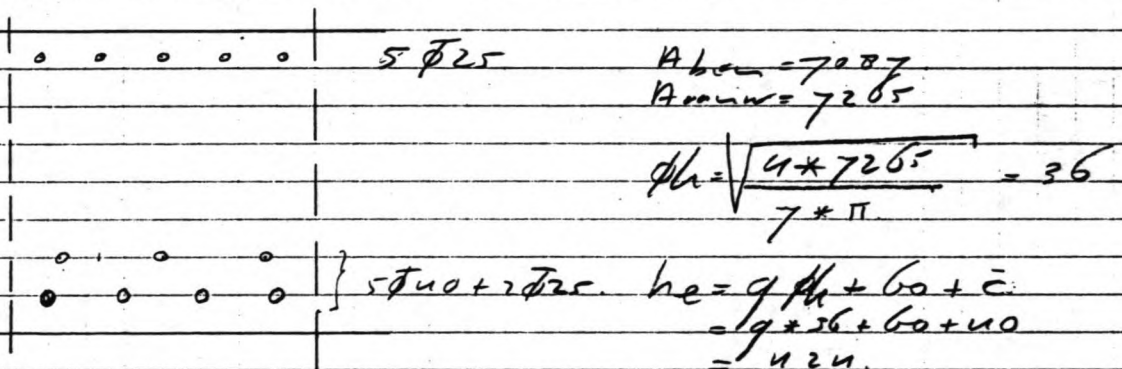 5 Φ25 A ben = 7087
A aanw = 7265
φk = √(4 * 7265 / 7 * π) = 36
5Φ40 + 2Φ25. he = 9 φk + 60 + c̄
= 9 * 36 + 60 + 40
= 424.